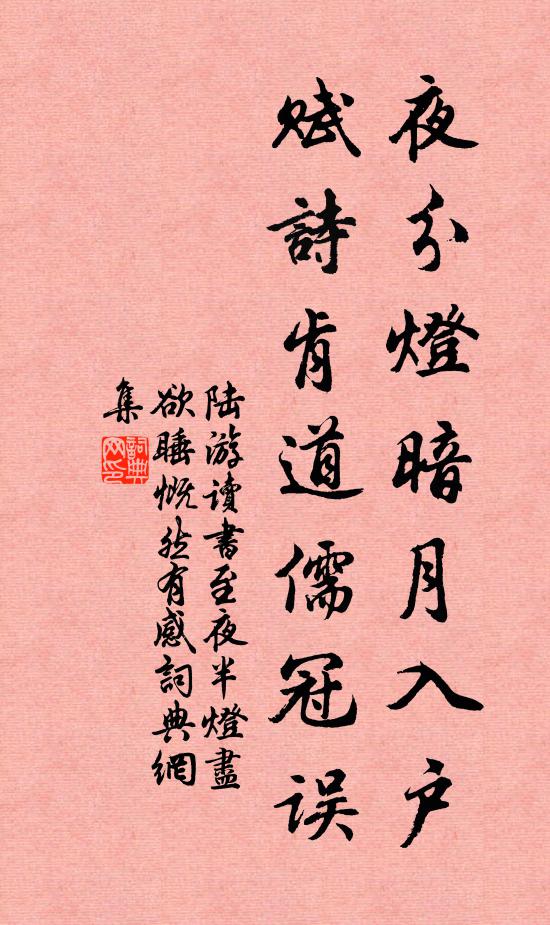 夜分燈暗月入户
赋詩肯道儒冠误
陆游讀書至夜半燈盡
欲睡慨然有感詞典網
集
詞典
网印